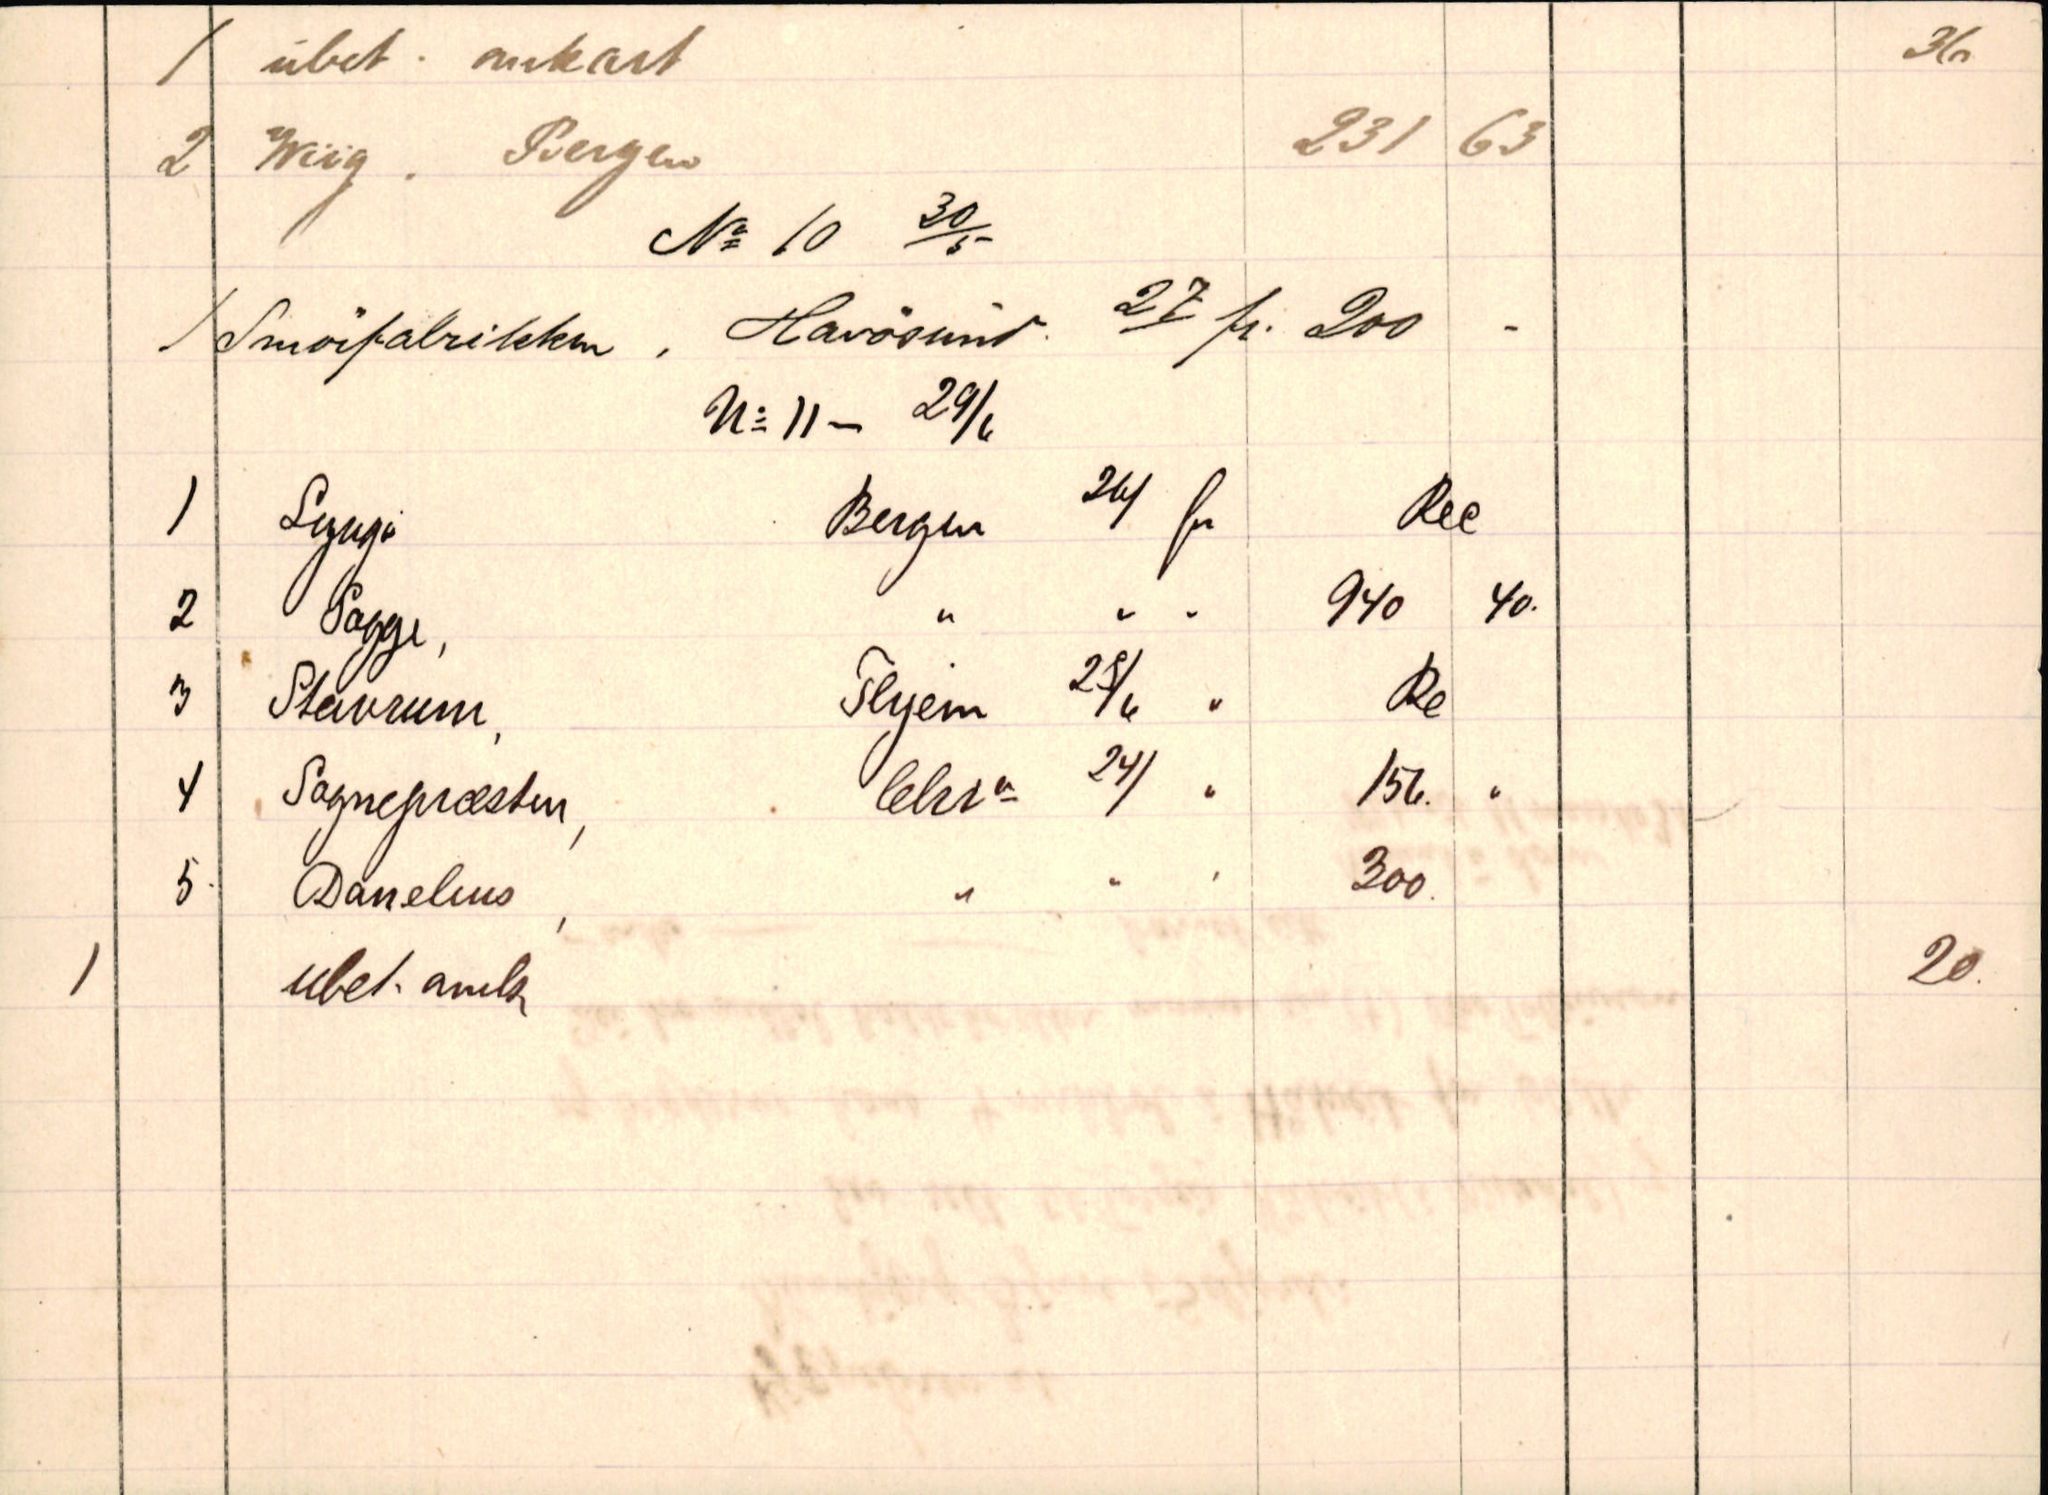 1 übet. ankart 36
2 Wiig. Bergen 231 63
No 10 30/5
1 Smörfabrikken, Havösund. 27 fr. 200 -
No 11 – 29/6
1 Lyngö Bergen 26/ fr Rec
2 Sagge, " " " 940 40.
3 Stavrum, 28/6 " Re
4 Sognepræsten, Chra 24/ " 156. "
5. Danelius, " " ' 300.
1 ubet. ank 20.